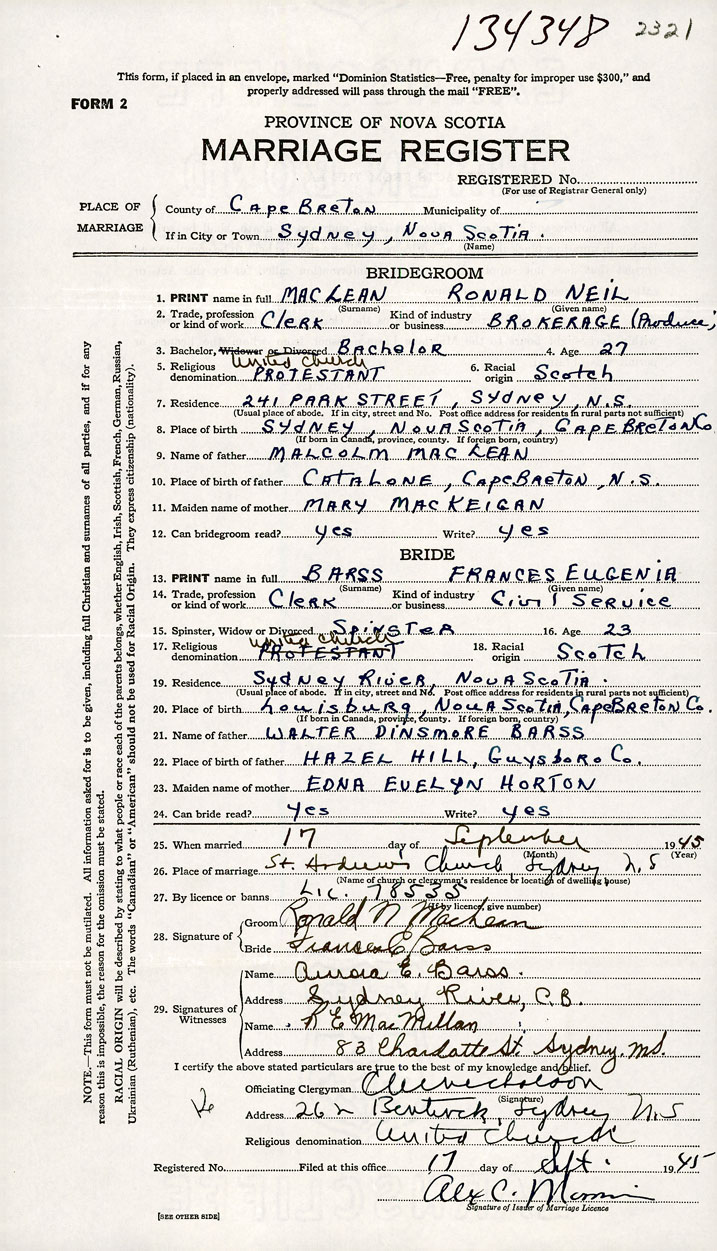 134348 2321
This form, if placed in an envelope, marked "Dominion Statistics—Free, penalty for improper use $300," and
properly addressed will pass through the mail "FREE".
FORM 2
PROVINCE OF NOVA SCOTIA
MARRIAGE REGISTER
REGISTERED No.
(For use of Registrar General only)
PLACE OF MARRIAGE
County of Cape Breton Municipality of
If in City or Town Sydney, Nova Scotia.
(Name)
BRIDEGROOM
1. PRINT name in full MACLEAN RONALD NEIL
(Surname) (Given name)
2. Trade, profession or kind of work Clerk Kind of industry or business BROKERAGE (Produce)
3. Bachelor, Widower or Divorced Bachelor 4. Age 27
United Church
5. Religious denomination PROTESTANT 6. Racial origin Scotch
7. Residence 241 PARK STREET, SYDNEY, N.S.
(Usual place of abode. If in city, street and No. Post office address for residents in rural parts not sufficient)
8. Place of birth SYDNEY, NOVA SCOTIA, CAPE BRETON Co
(If born in Canada, province, county. If foreign born, country)
9. Name of father MALCOLM MAC LEAN
10. Place of birth of father CATALONE, CAPE BRETON, N.S.
11. Maiden name of mother MARY MACKEIGAN
12. Can bridegroom read? yes Write? yes
BRIDE
13. PRINT name in full BARSS FRANCES EUGENIA
(Surname) (Given name)
14. Trade, profession or kind of work Clerk Kind of industry or business Civil Service
15. Spinster, Widow or Divorced SPINSTER 16. Age 23
United Church
17. Religious denomination PROTESTANT 18. Racial origin Scotch
19. Residence Sydney River, Nova Scotia.
(Usual place of abode. If in city, street and No. Post office address for residents in rural parts not sufficient)
20. Place of birth Louisburg, Nova Scotia, Cape Breton Co.
(If born in Canada, province, county. If foreign born, country)
21. Name of father WALTER DINSMORE BARSS
22. Place of birth of father HAZEL HILL, Guysboro Co.
23. Maiden name of mother EDNA EVELYN HORTON
24. Can bride read? yes Write? yes
25. When married 17 day of September 1945
(Month) (Year)
26. Place of marriage St. Andrews Church, Sydney N.S
(Name of church or clergyman's residence or location of dwelling house)
27. By licence or banns Lic. 78535
(If by licence, give number)
28. Signature of
Groom Ronald N MacLean
Bride Frances E. Barss
29. Signatures of Witnesses
Name Aurora E. Barss.
Address Sydney River, C.B.
Name R E MacMillan
Address 83 Charlotte St. Sydney. N.S.
I certify the above stated particulars are true to the best of my knowledge and belief.
Officiating Clergyman
(Signature)
Address 262 Bentinck, Sydney N.S
Religious denomination United Church
Registered No. Filed at this office 17 day of Sept. 1945
Alex C.
Signature of Issuer of Marriage Licence
[SEE OTHER SIDE]
NOTE.—This form must not be mutilated. All information asked for is to be given, including full Christian and surnames of all parties, and if for any
reason this is impossible, the reason for the omission must be stated.
RACIAL ORIGIN will be described by stating to what people or race each of the parents belongs, whether English, Irish, Scottish, French, German, Russian,
Ukrainian (Ruthenian), etc. The words "Canadian" or "American" should not be used for Racial Origin. They express citizenship (nationality).